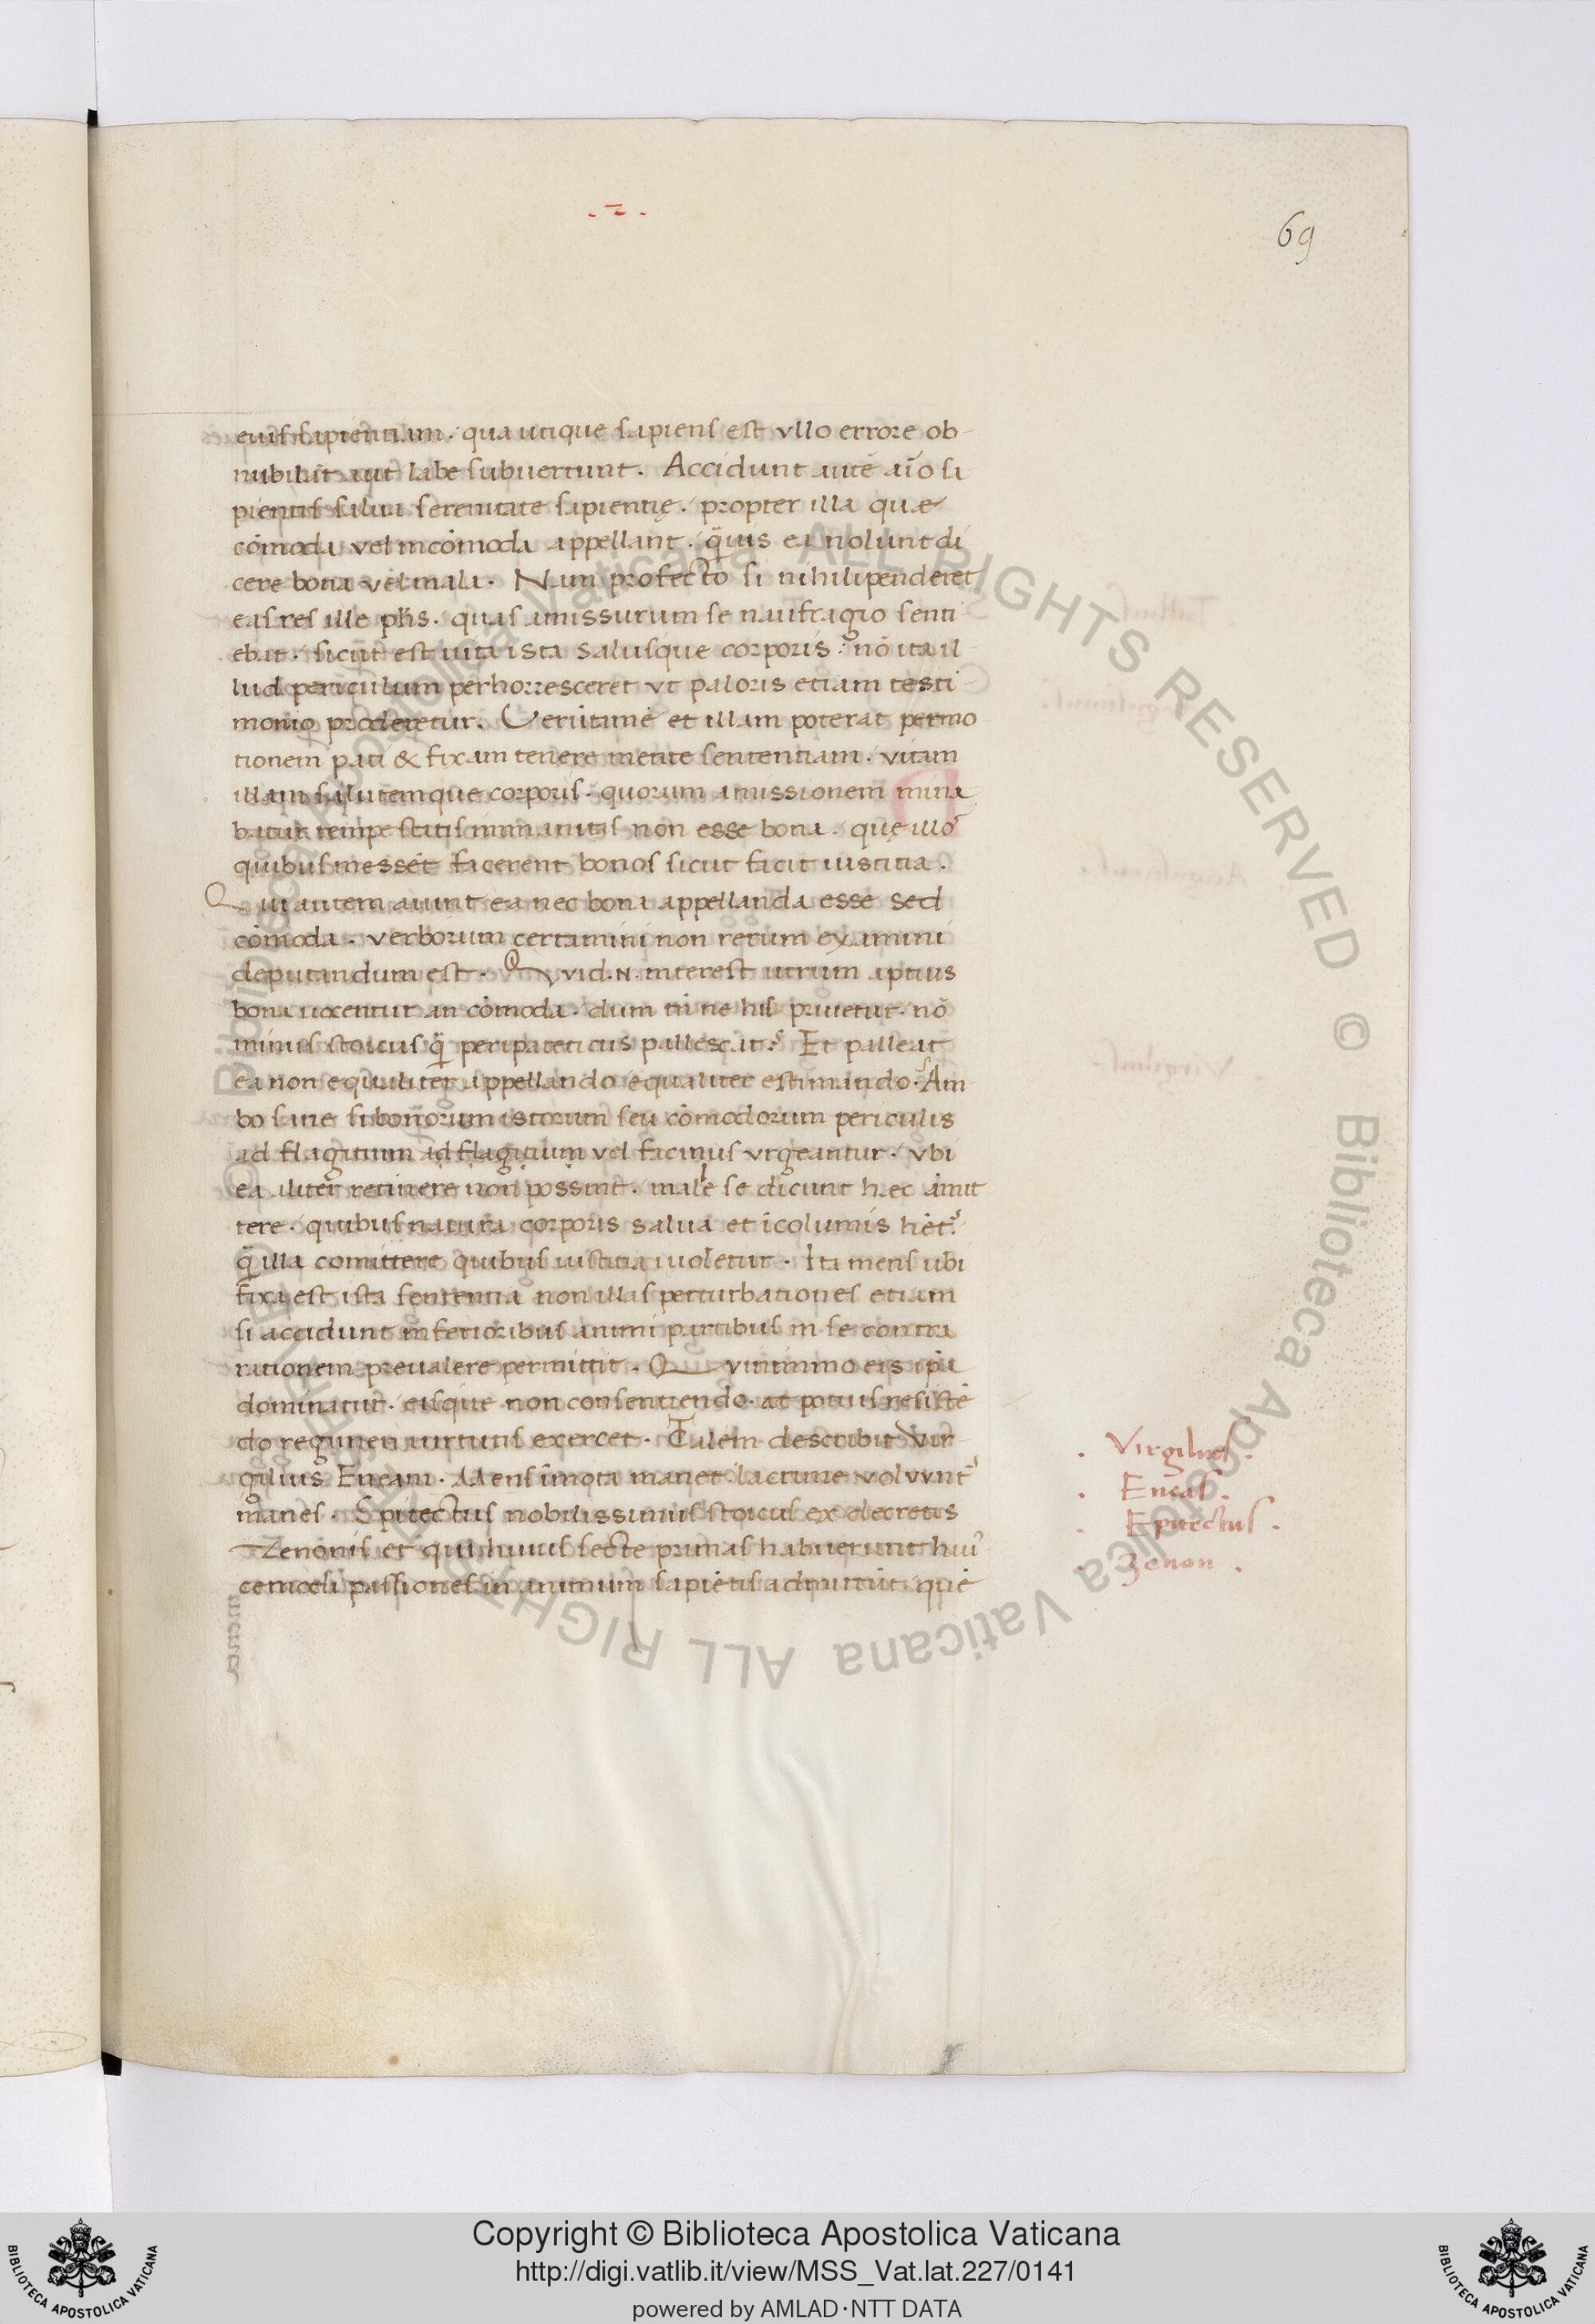 . 2 .
69
eius sapientiam. qua utique sapiens est vllo errore ob-
nubilãt aut labe subuertunt. Accidunt autẽ aĩo sa
pientis salua serenitate sapientię. propter illa quæ
cõmoda vel incõmoda appellant. q̃uis ea nolunt di
cere bona vel mala. Nam profecto si nihilipenderet
eas res ille phs. quas amissurum se naufragio senti
ebat. sicut est uita ista salusque corporis: nõ ita il-
lud periculum perhorresceret vt paloris etiam testi-
monio proderetur. Verũtamẽ et illam poterat permo
tionem pati & fixam tenere mente sententiam. vitam
illam salutemque corporis. quorum amissionem mina
batur tempestatis immanitas non esse bona. quę illos
quibus inessẽt facerent bonos sicut facit iustitia.
Qui autem aiunt ea nec bona appellanda esse sed
cõmoda. verborum certamini non rerum examini
deputandum est. Qvid .N. interest utrum aptius
bona uocentur an cõmoda. dum tñ ne his priuetur. nõ
minus stoicus q̃ peripateticus pallescat? Et palleat
ea non equaliter appellando equaliter estimando. Am
bo sane si bonorum istorum seu cõmodorum periculis
ad flagitium ad flagitium vel facinus vrgeantur. vbi
ea aliter retinere non possint. malle se dicunt hec amit
tere. quibus natura corporis salua et ĩcolumis hẽt?
q̃ illa comittere quibus iustitia uioletur. Ita mens ubi
fixa est ista sententia non illas perturbationes etiam
si accidunt inferioribus animi partibus in se contra
rationem preualere permittit. Quintimmo eis ipa
dominatur. eisque non consentiendo. at potius resistẽ
do regnum uirtutis exercet. Talem describit Vir-
gilius Eneam. Mens ĩmota manet. lacrime volvunt
inanes. Epitectus nobilissimus stoicus ex decretis
Zenonis et qui huius secte primas habuerunt hui
cemodi passiones in animum sapiẽtis admittũt. quẽ
. Virgilius.
. Eneas.
. Epitectus.
. Zenon.
Copyright © Biblioteca Apostolica Vaticana
http://digi.vatlib.it/view/MSS_Vat.lat.227/0141
powered by AMLAD·NTT DATA
BIBLIOTECA APOSTOLICA VATICANA
BIBLIOTECA APOSTOLICA VATICANA